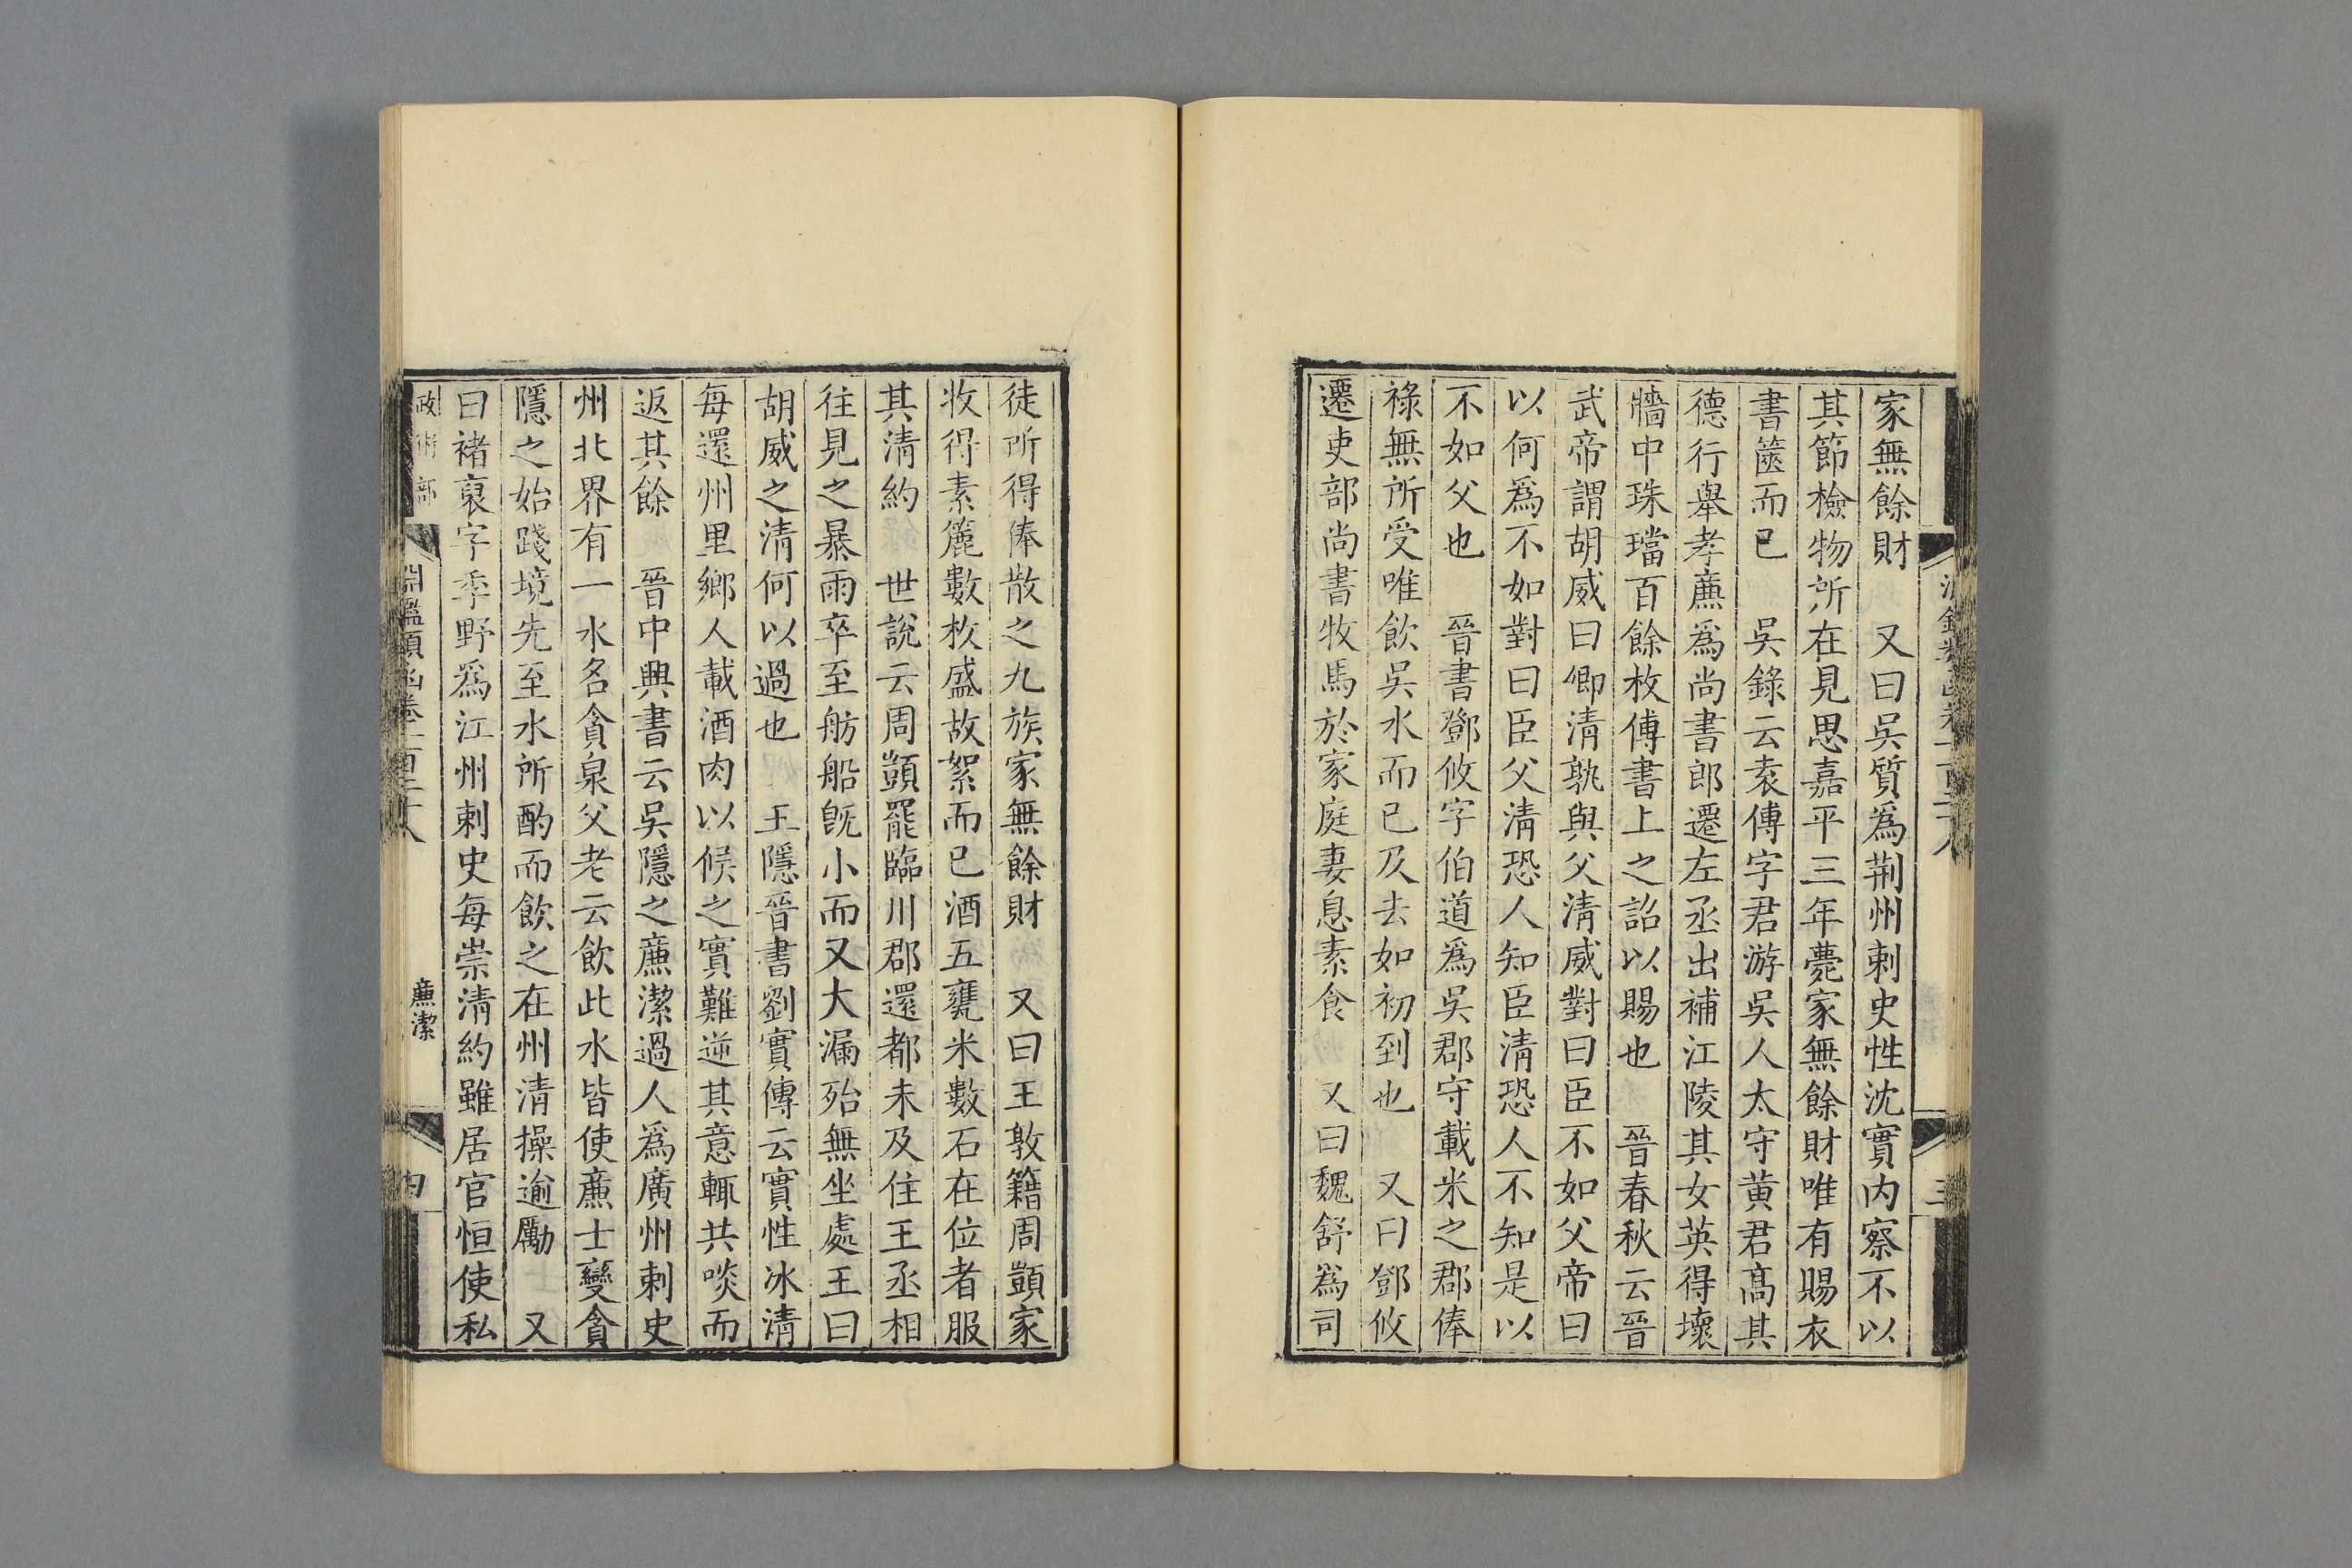 家無餘財　又曰吳質爲荆州剌史性沈實内察不以
其節檢物所在見思嘉平三年薨家無餘財唯有賜衣
書篋而已　吳錄云袁傅字君游吳人太守黄君髙其
德行舉孝亷爲尚書郎遷左丞出補江陵其女英得壞
牆中珠璫百餘枚傅書上之詔以賜也　晉春秋云晉
武帝謂胡威曰卿清孰與父清威對曰臣不如父帝曰
以何爲不如對曰臣父清恐人知臣清恐人不知是以
不如父也　晉書鄧攸字伯道爲吳郡守載米之郡俸
祿無所受唯飲吳水而已及去如初到也　又曰鄧攸
遷吏部尚書牧馬於家庭妻息素食　又曰魏舒爲司
三
徒所得俸散之九族家無餘財　又曰王敦籍周顗家
收得素簏數枚盛故絮而已酒五甕米數石在位者服
其清約　世說云周顗罷臨川郡還都未及住王丞相
往見之暴雨卒至舫船旣小而又大漏殆無坐處王曰
胡威之清何以過也　王隱晉書劉實傳云實性冰清
每還州里鄉人載酒肉以候之實難逆其意輒共啖而
返其餘　晉中興書云吳隱之亷潔過人爲廣州剌史
州北界有一水名貪泉父老云飲此水皆使亷士變貪
隱之始踐境先至水所酌而飲之在州清操逾勵　又
曰褚裒字季野爲江州剌史每崇清約雖居官恒使私
政術部　淵鑑類函卷一百二十八　亷潔　四